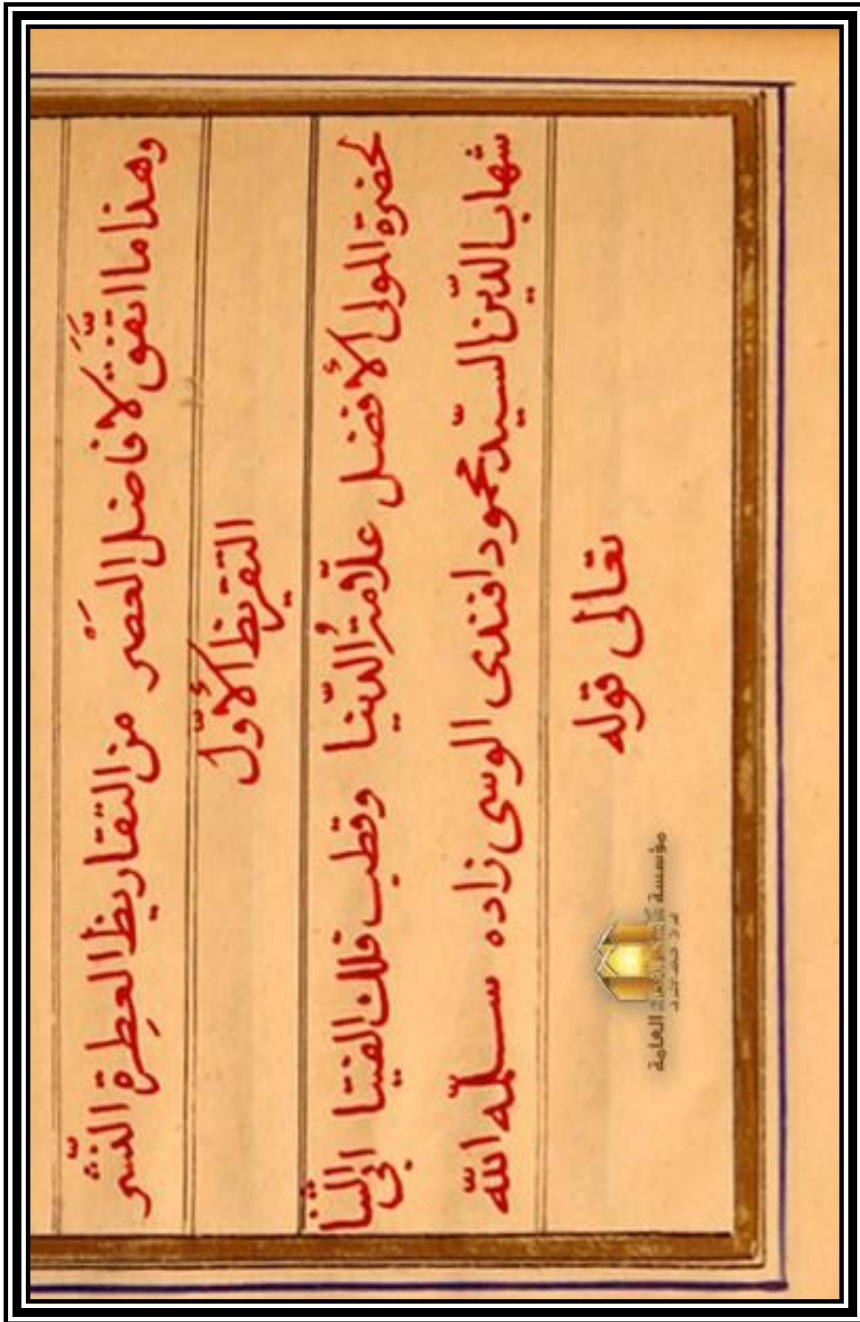 وهذا ما اتّفق لأفاضل العصر من التقاريظ العطرة النّشر
التقريظ الأوّل
لحضرة المولى الأفضل علّامة الدّنيا وقطب فلك الفتيا ابى الثّنا
شهاب الدّين السيّد محمود افندى الوسى زاده سلّمه اللّه
تعالى قوله
مؤسسة كاشف الغطاء العامة